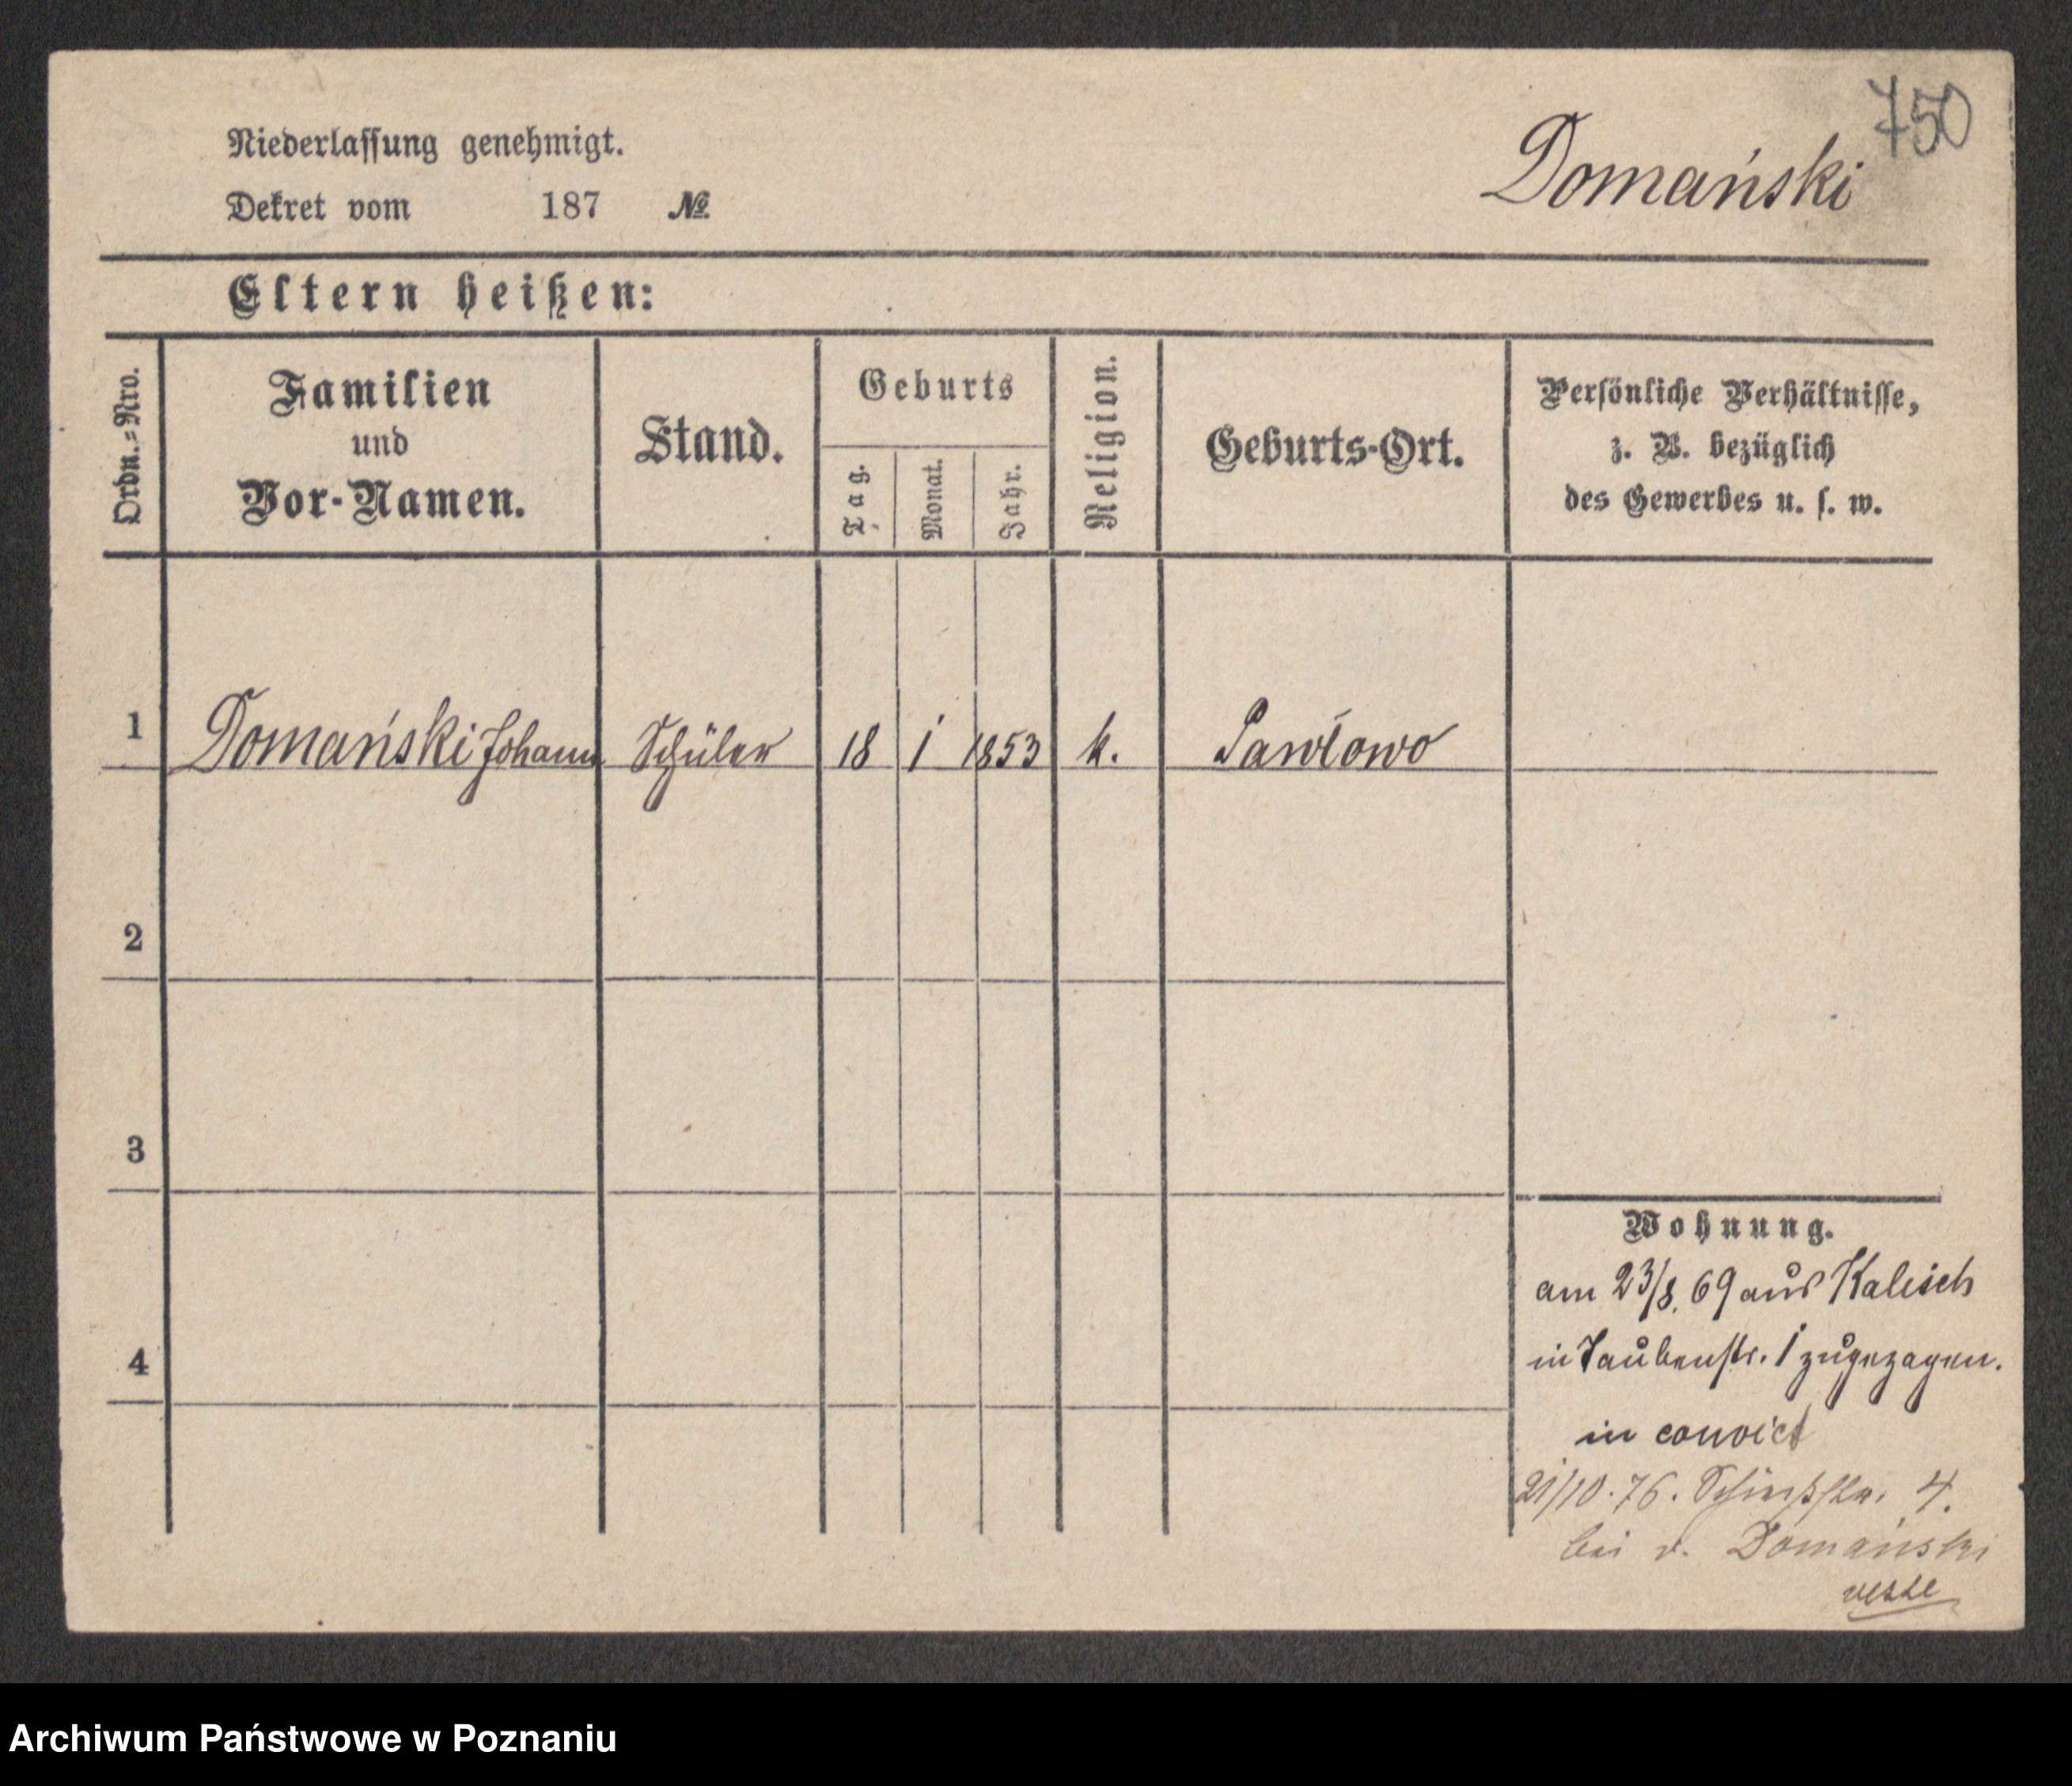 750
Niederlassung genehmigt.
Domański
Dekret vom 187 №
Eltern heißen:
Ordn.=Nro.
Familien
und
Vor-Namen.
Stand.
Geburts
Tag.
Monat.
Jahr.
Religion.
Geburts-Ort.
Persönliche Verhältnisse,
z. B. bezüglich
des Gewerbes u. s. w.
1 Domański Johann Schüler 18 1 1853 k. Pawłowo
2
3
4
Wohnung.
am 23/8. 69 aus Kalisch
in Taubenstr. 1 zugezogen.
in convict
21/10. 76. Schießstr. 4.
bei v. Domański
Archiwum Państwowe w Poznaniu